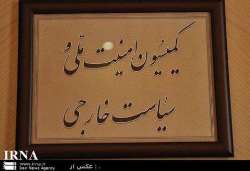 کمیسیون امنیت ملی و
سیاست خارجی
IRNA
Iran News Agency
عکس از :